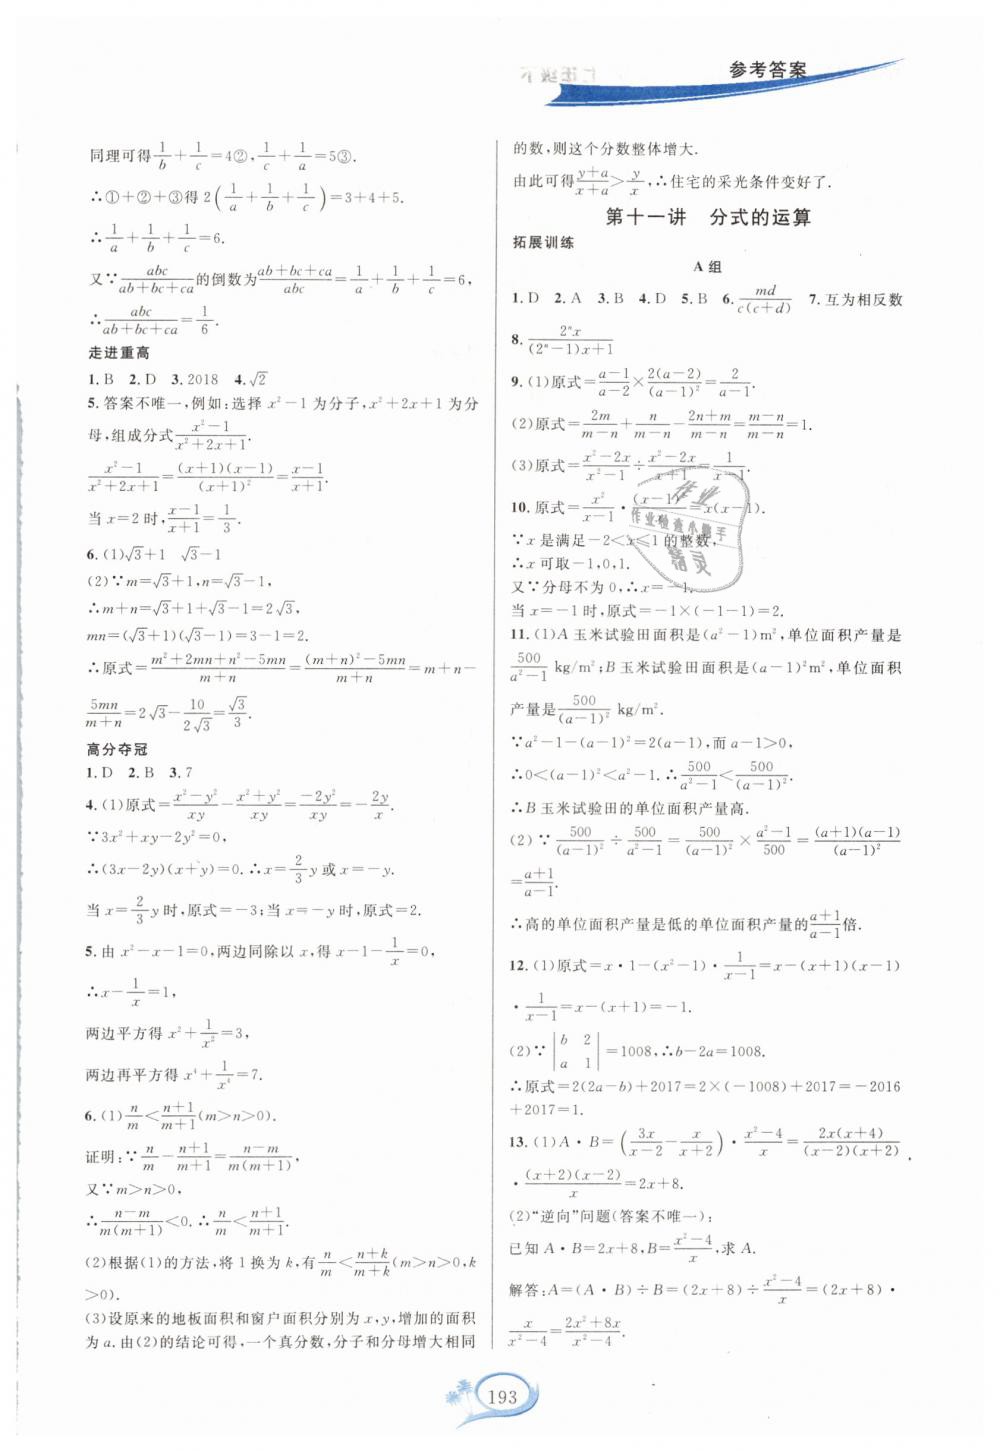 参考答案
同理可得1/b+1/c=4②,1/c+1/a=5③.
∴①+②+③得2(1/a+1/b+1/c)=3+4+5.
∴1/a+1/b+1/c=6.
又∵abc/(ab+bc+ca)的倒数为(ab+bc+ca)/abc=1/a+1/b+1/c=6,
∴abc/(ab+bc+ca)=1/6.
走进重高
1.B 2.D 3.2018 4.√2
5.答案不唯一,例如:选择x²-1为分子,x²+2x+1为分
母,组成分式(x²-1)/(x²+2x+1).
(x²-1)/(x²+2x+1)=(x+1)(x-1)/(x+1)²=(x-1)/(x+1).
当x=2时,(x-1)/(x+1)=1/3.
6.(1)√3+1 √3-1
(2)∵m=√3+1,n=√3-1,
∴m+n=√3+1+√3-1=2√3,
mn=(√3+1)(√3-1)=3-1=2.
∴原式=(m²+2mn+n²-5mn)/(m+n)=((m+n)²-5mn)/(m+n)=m+n-
5mn/(m+n)=2√3-10/(2√3)=√3/3.
高分夺冠
1.D 2.B 3.7
4.(1)原式=(x²-y²)/xy-(x²+y²)/xy=-2y²/xy=-2y/x.
∵3x²+xy-2y²=0,
∴(3x-2y)(x+y)=0.∴x=2/3y或x=-y.
当x=2/3y时,原式=-3;当x=-y时,原式=2.
5.由x²-x-1=0,两边同除以x,得x-1-1/x=0,
∴x-1/x=1,
两边平方得x²+1/x²=3,
两边再平方得x⁴+1/x⁴=7.
6.(1)n/m<(n+1)/(m+1)(m>n>0).
证明:∵n/m-(n+1)/(m+1)=(n-m)/m(m+1),
又∵m>n>0,
∴(n-m)/m(m+1)<0.∴n/m<(n+1)/(m+1).
(2)根据(1)的方法,将1换为k,有n/m<(n+k)/(m+k)(m>n>0,k
>0).
(3)设原来的地板面积和窗户面积分别为x,y,增加的面积
为a.由(2)的结论可得,一个真分数,分子和分母增大相同
的数,则这个分数整体增大.
由此可得(y+a)/(x+a)>y/x,∴住宅的采光条件变好了.
第十一讲 分式的运算
拓展训练
A组
1.D 2.A 3.B 4.D 5.B 6.md/c(c+d) 7.互为相反数
8.2ⁿx/((2ⁿ-1)x+1)
9.(1)原式=(a-1)/(a-2)×2(a-2)/(a-1)²=2/(a-1).
(2)原式=2m/(m-n)+n/(m-n)-(2n+m)/(m-n)=(m-n)/(m-n)=1.
(3)原式=(x²-2x)/(x²-1)÷(x²-2x)/(x+1)=1/(x-1).
10.原式=x²/(x-1)·(x-1)²/x=x(x-1).
∵x是满足-2<x≤1的整数,
∴x可取-1,0,1.
又∵分母不为0,∴x=-1.
当x=-1时,原式=-1×(-1-1)=2.
11.(1)A玉米试验田面积是(a²-1)m²,单位面积产量是
500/(a²-1) kg/m²;B玉米试验田面积是(a-1)²m²,单位面积
产量是500/(a-1)² kg/m².
∵a²-1-(a-1)²=2(a-1),而a-1>0,
∴0<(a-1)²<a²-1.∴500/(a²-1)<500/(a-1)².
∴B玉米试验田的单位面积产量高.
(2)∵500/(a-1)²÷500/(a²-1)=500/(a-1)²×(a²-1)/500=(a+1)(a-1)/(a-1)²
=(a+1)/(a-1).
∴高的单位面积产量是低的单位面积产量的(a+1)/(a-1)倍.
12.(1)原式=x·1-(x²-1)·1/(x-1)=x-(x+1)(x-1)
·1/(x-1)=x-(x+1)=-1.
(2)∵|b 2; a 1|=1008,∴b-2a=1008.
∴原式=2(2a-b)+2017=2×(-1008)+2017=-2016
+2017=1.
13.(1)A·B=(3x/(x-2)-x/(x+2))·(x²-4)/x=2x(x+4)/(x-2)(x+2)
·(x+2)(x-2)/x=2x+8.
(2)“逆向”问题(答案不唯一):
已知A·B=2x+8,B=(x²-4)/x,求A.
解答:A=(A·B)÷B=(2x+8)÷(x²-4)/x=(2x+8)·
x/(x²-4)=(2x²+8x)/(x²-4).
作业
作业检查小助手
精灵
193